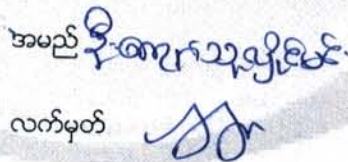 အမည် ဦးကျော်သူလှိုင်မင်း
လက်မှတ်